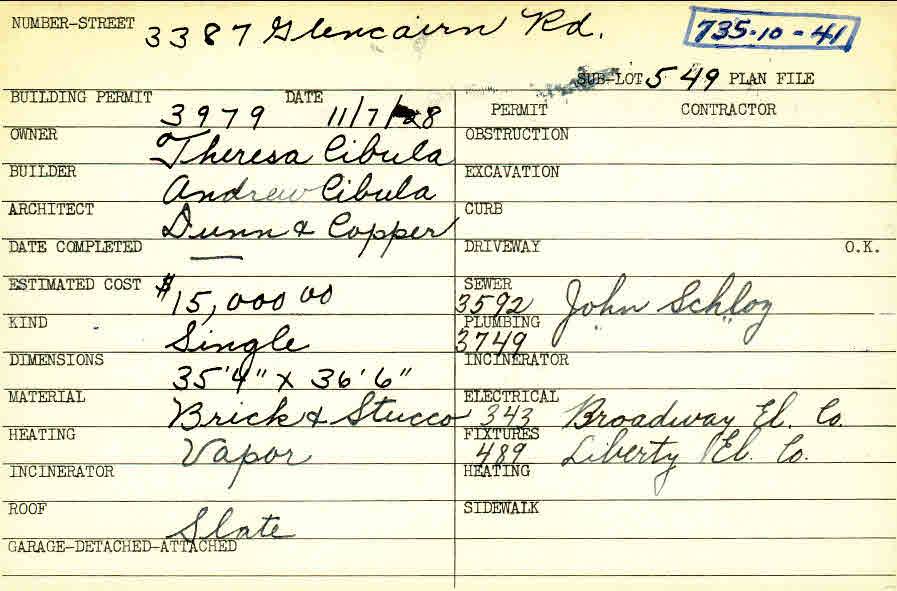 NUMBER-STREET 3387 Glencairn Rd. 735-10-41
SUB-LOT 549 PLAN FILE
BUILDING PERMIT 3979 DATE 11/7/28
PERMIT CONTRACTOR
OWNER Theresa Cibula
OBSTRUCTION
BUILDER Andrew Cibula
EXCAVATION
ARCHITECT Dunn & Copper
CURB
DATE COMPLETED —
DRIVEWAY O.K.
ESTIMATED COST $15,000 00
SEWER 3592 John Schloz
KIND Single
PLUMBING 3749 " "
DIMENSIONS 35'4" X 36'6"
INCINERATOR
MATERIAL Brick & Stucco
ELECTRICAL 343 Broadway El. Co.
HEATING Vapor
FIXTURES 489 Liberty El. Co.
INCINERATOR
HEATING
ROOF Slate
SIDEWALK
GARAGE-DETACHED-ATTACHED